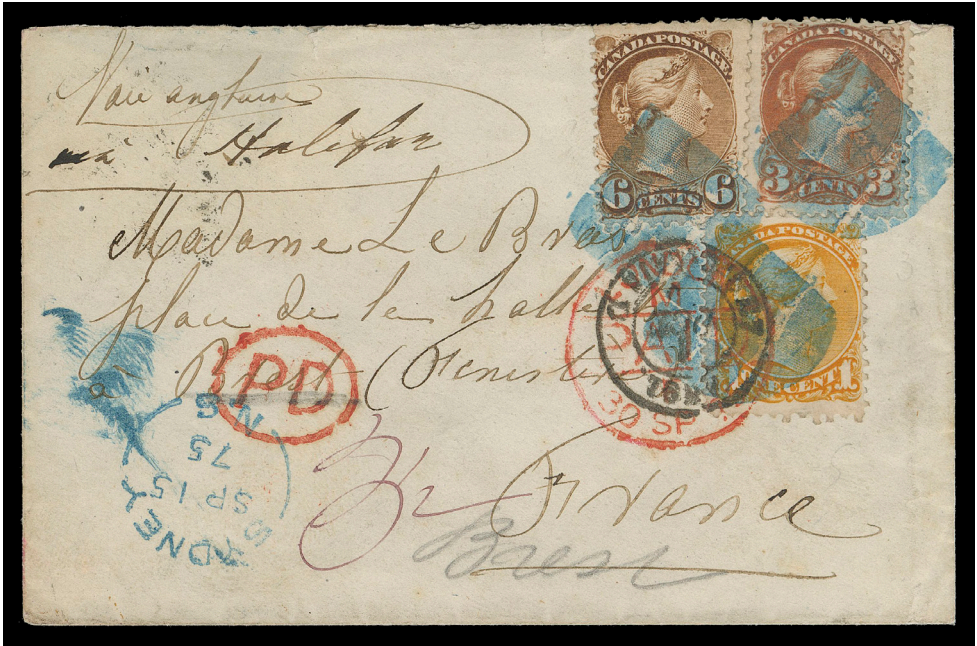 Voie anglaise
via Halifax
CANADA POSTAGE
6 CENTS 6
CANADA POSTAGE
3 CENTS 3
CANADA POSTAGE
ONE CENT 1
Madame Le Bras
place de la halle
à Brest (Finistère
France
Brest
PD
SYDNEY
SP 15
75
N S
30 SP